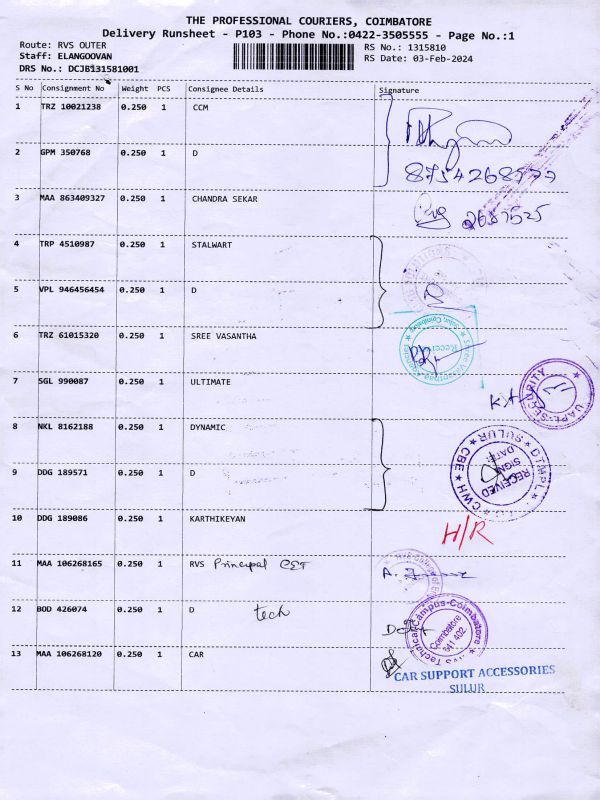 THE PROFESSIONAL COURIERS, COIMBATORE
Delivery Runsheet - P103 - Phone No.:0422-3505555 - Page No.:1
Route: RVS OUTER
RS No.: 1315810
Staff: ELANGOOVAN
RS Date: 03-Feb-2024
DRS No.: DCJB131581001
S No Consignment No Weight PCS Consignee Details Signature
1 TRZ 10021238 0.250 1 CCM
2 GPM 350768 0.250 1 D
3 MAA 863409327 0.250 1 CHANDRA SEKAR
4 TRP 4510987 0.250 1 STALWART
5 VPL 946456454 0.250 1 D
6 TRZ 61015320 0.250 1 SREE VASANTHA
7 SGL 990087 0.250 1 ULTIMATE
UAPL SECURITY
8 NKL 8162188 0.250 1 DYNAMIC
DTMPL CWH CBE SULUR
RECEIVED
SIGN
DATE
9 DDG 189571 0.250 1 D
10 DDG 189086 0.250 1 KARTHIKEYAN H/R
11 MAA 106268165 0.250 1 RVS Principal CET
12 BOD 426074 0.250 1 D tech
RVS Technical Campus-Coimbatore
Coimbatore
641 402
13 MAA 106268120 0.250 1 CAR
CAR SUPPORT ACCESSORIES
SULUR